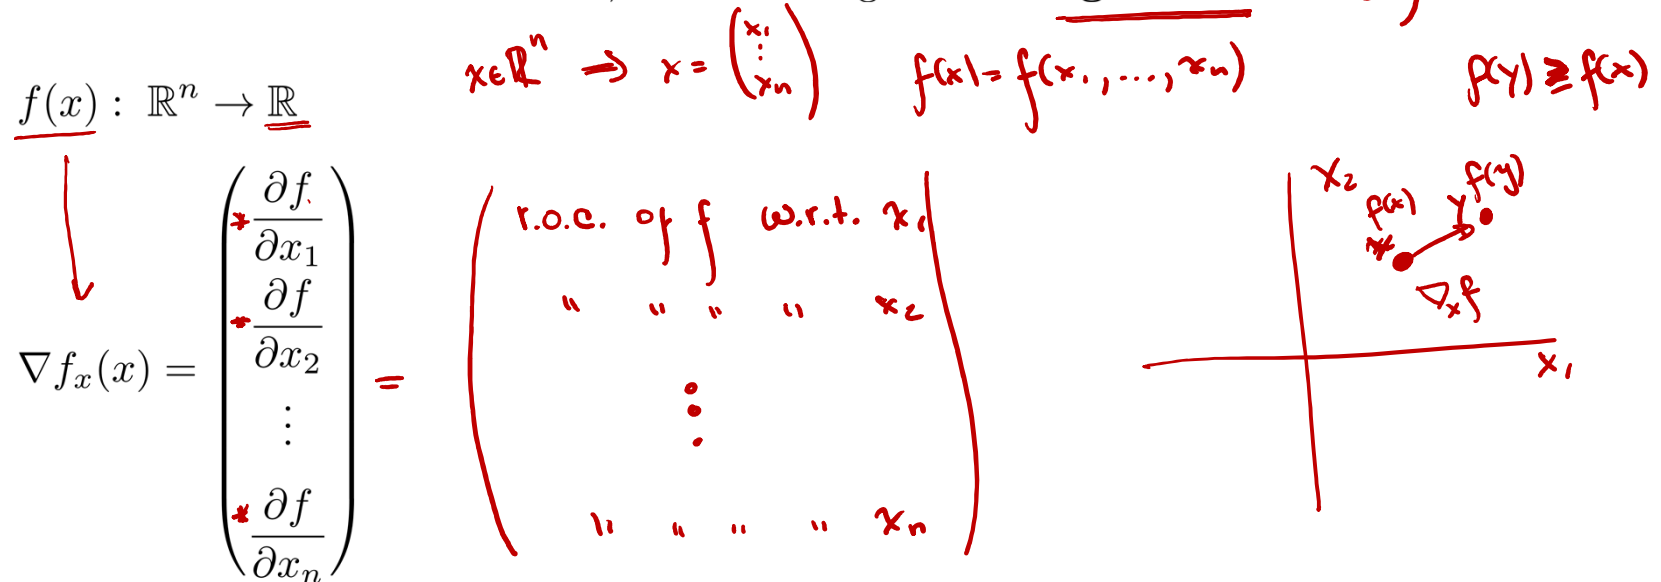 x∈ℝⁿ ⇒ x = (x₁ ⋮ xₙ)   f(x) = f(x₁, ..., xₙ)   f(y) ≥ f(x)
f(x) : ℝⁿ → ℝ
∇fₓ(x) = (∂f/∂x₁ ∂f/∂x₂ ⋮ ∂f/∂xₙ) =
* * *
r.o.c. of f w.r.t. x₁
" " " " x₂
⋮
" " " " xₙ
x₂
f(x) y f(y)
∇ₓf
x₁